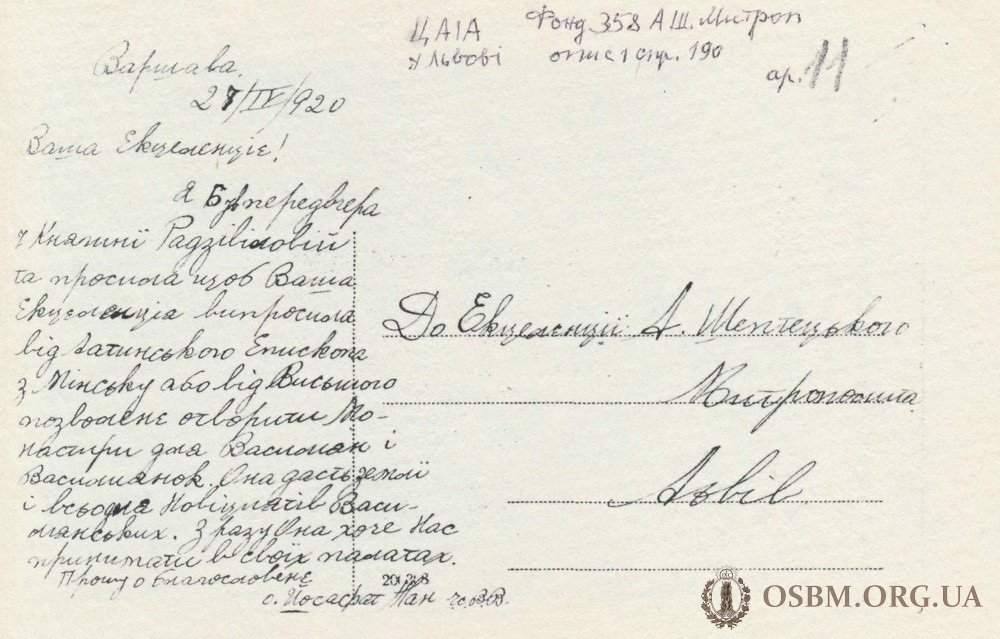 ЦДІА Фонд 358 А Ш. Митроп
у Львові опис 1 стр. 190
ар. 11
Варшава.
27/IV/920
Ваша Екцеленціє!
Я був передвчера
у Княгині Радзівіловій
та просила щоб Ваша
Екцеленція випросила
від Латинського Епископа
з Мінську або від Висшого
позволенє отворити Мо-
настири для Василиян і
Василиянок. Она дасть землі
і всьо для Новіціятів Васи-
лянських. З разу Она хоче Нас
приймати в своїх палатах.
Прошу о благословенє
с. Йосафат Жан ЧСВВ.
До Екцеленції А. Шептецького
Митрополита
Львів
20128
OSBM.ORG.UA